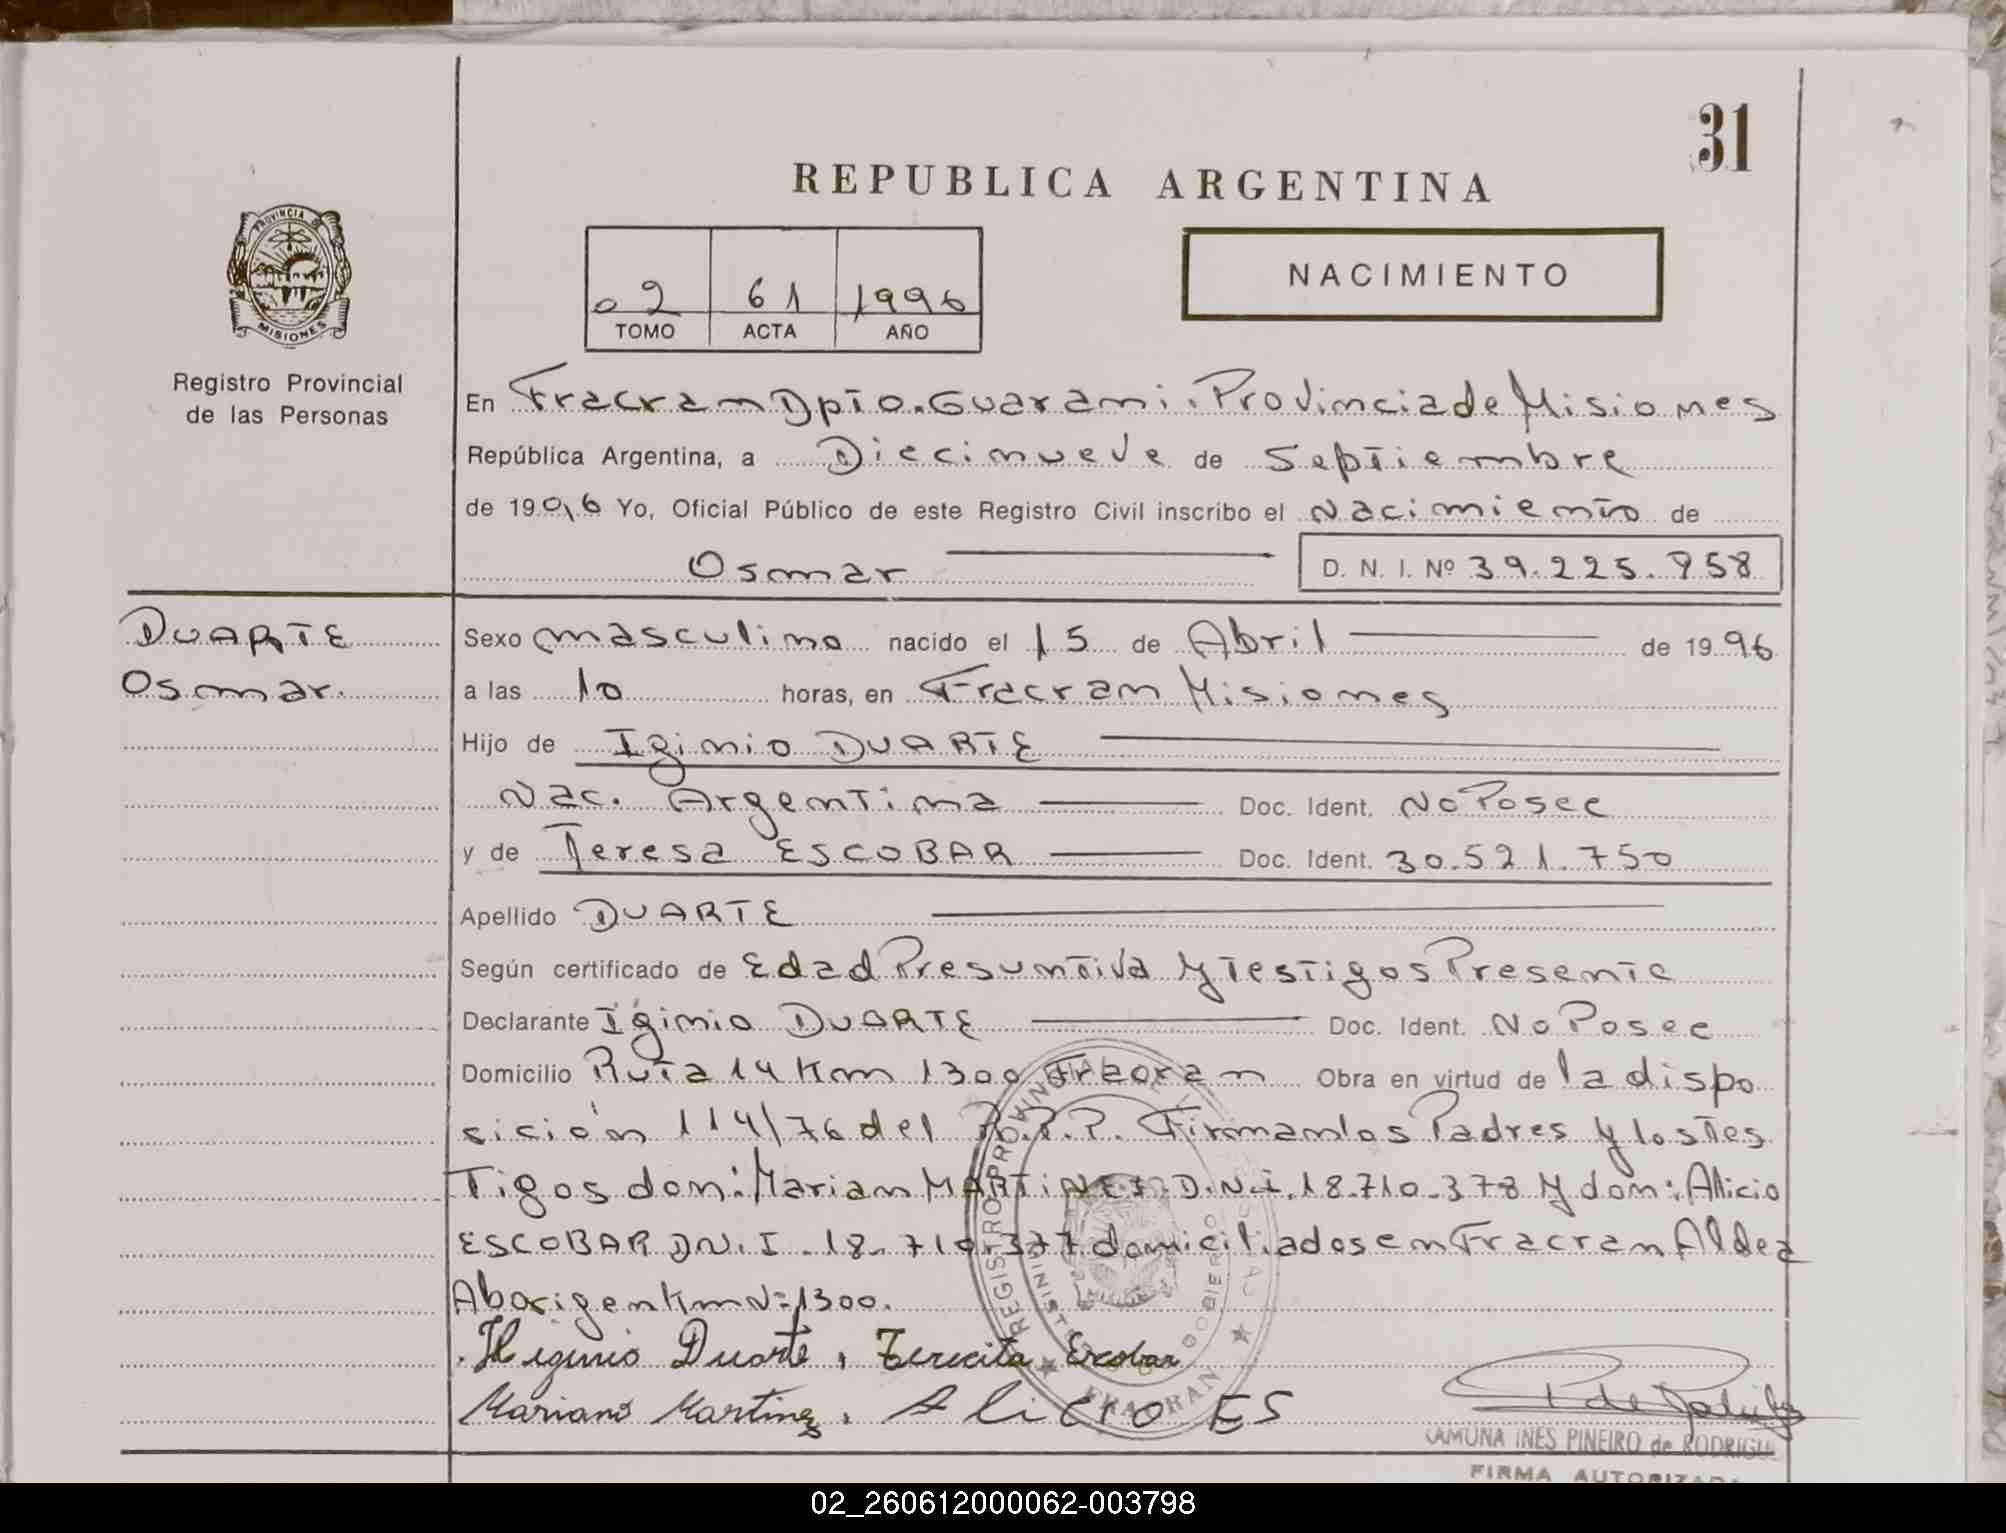 31
REPUBLICA ARGENTINA
PROVINCIA DE
MISIONES
Registro Provincial
de las Personas
02 61 1996
TOMO ACTA AÑO
NACIMIENTO
En Fracran Dpto. Guarani. Provincia de Misiones
República Argentina, a Diecinueve de Septiembre
de 1996 Yo, Oficial Público de este Registro Civil inscribo el Nacimiento de
Osmar D. N. I. Nº 39.225.958
DUARTE
Osmar.
Sexo masculino nacido el 15 de Abril de 1996
a las 10 horas, en Fracran Misiones
Hijo de Iginio DUARTE
Nac. Argentina Doc. Ident. No Posee
y de Teresa ESCOBAR Doc. Ident. 30.521.750
Apellido DUARTE
Según certificado de Edad Presuntiva y Testigos Presente
Declarante Iginio DUARTE Doc. Ident. No Posee
Domicilio Ruta 14 Km 1300 Fracran Obra en virtud de la dispo
sición 114/76 del R.P.P. Firman los Padres y los Tes
Tigos don: Marian MARTINEZ D.N.I. 18.710.378 y don: Alicio
ESCOBAR DN.I. 18.710.377 domiciliados en Fracran Aldea
Aborigen Km Nº 1300.
Higinio Duarte, Terecita Escobar
Mariano Martinez, Alicio ES
REGISTRO PROVINCIAL DE
MINISTERIO GOBIERNO
FRACRAN
RAMONA INES PINEIRO de RODRIGUE
FIRMA AUTORIZADA
02_260612000062-003798